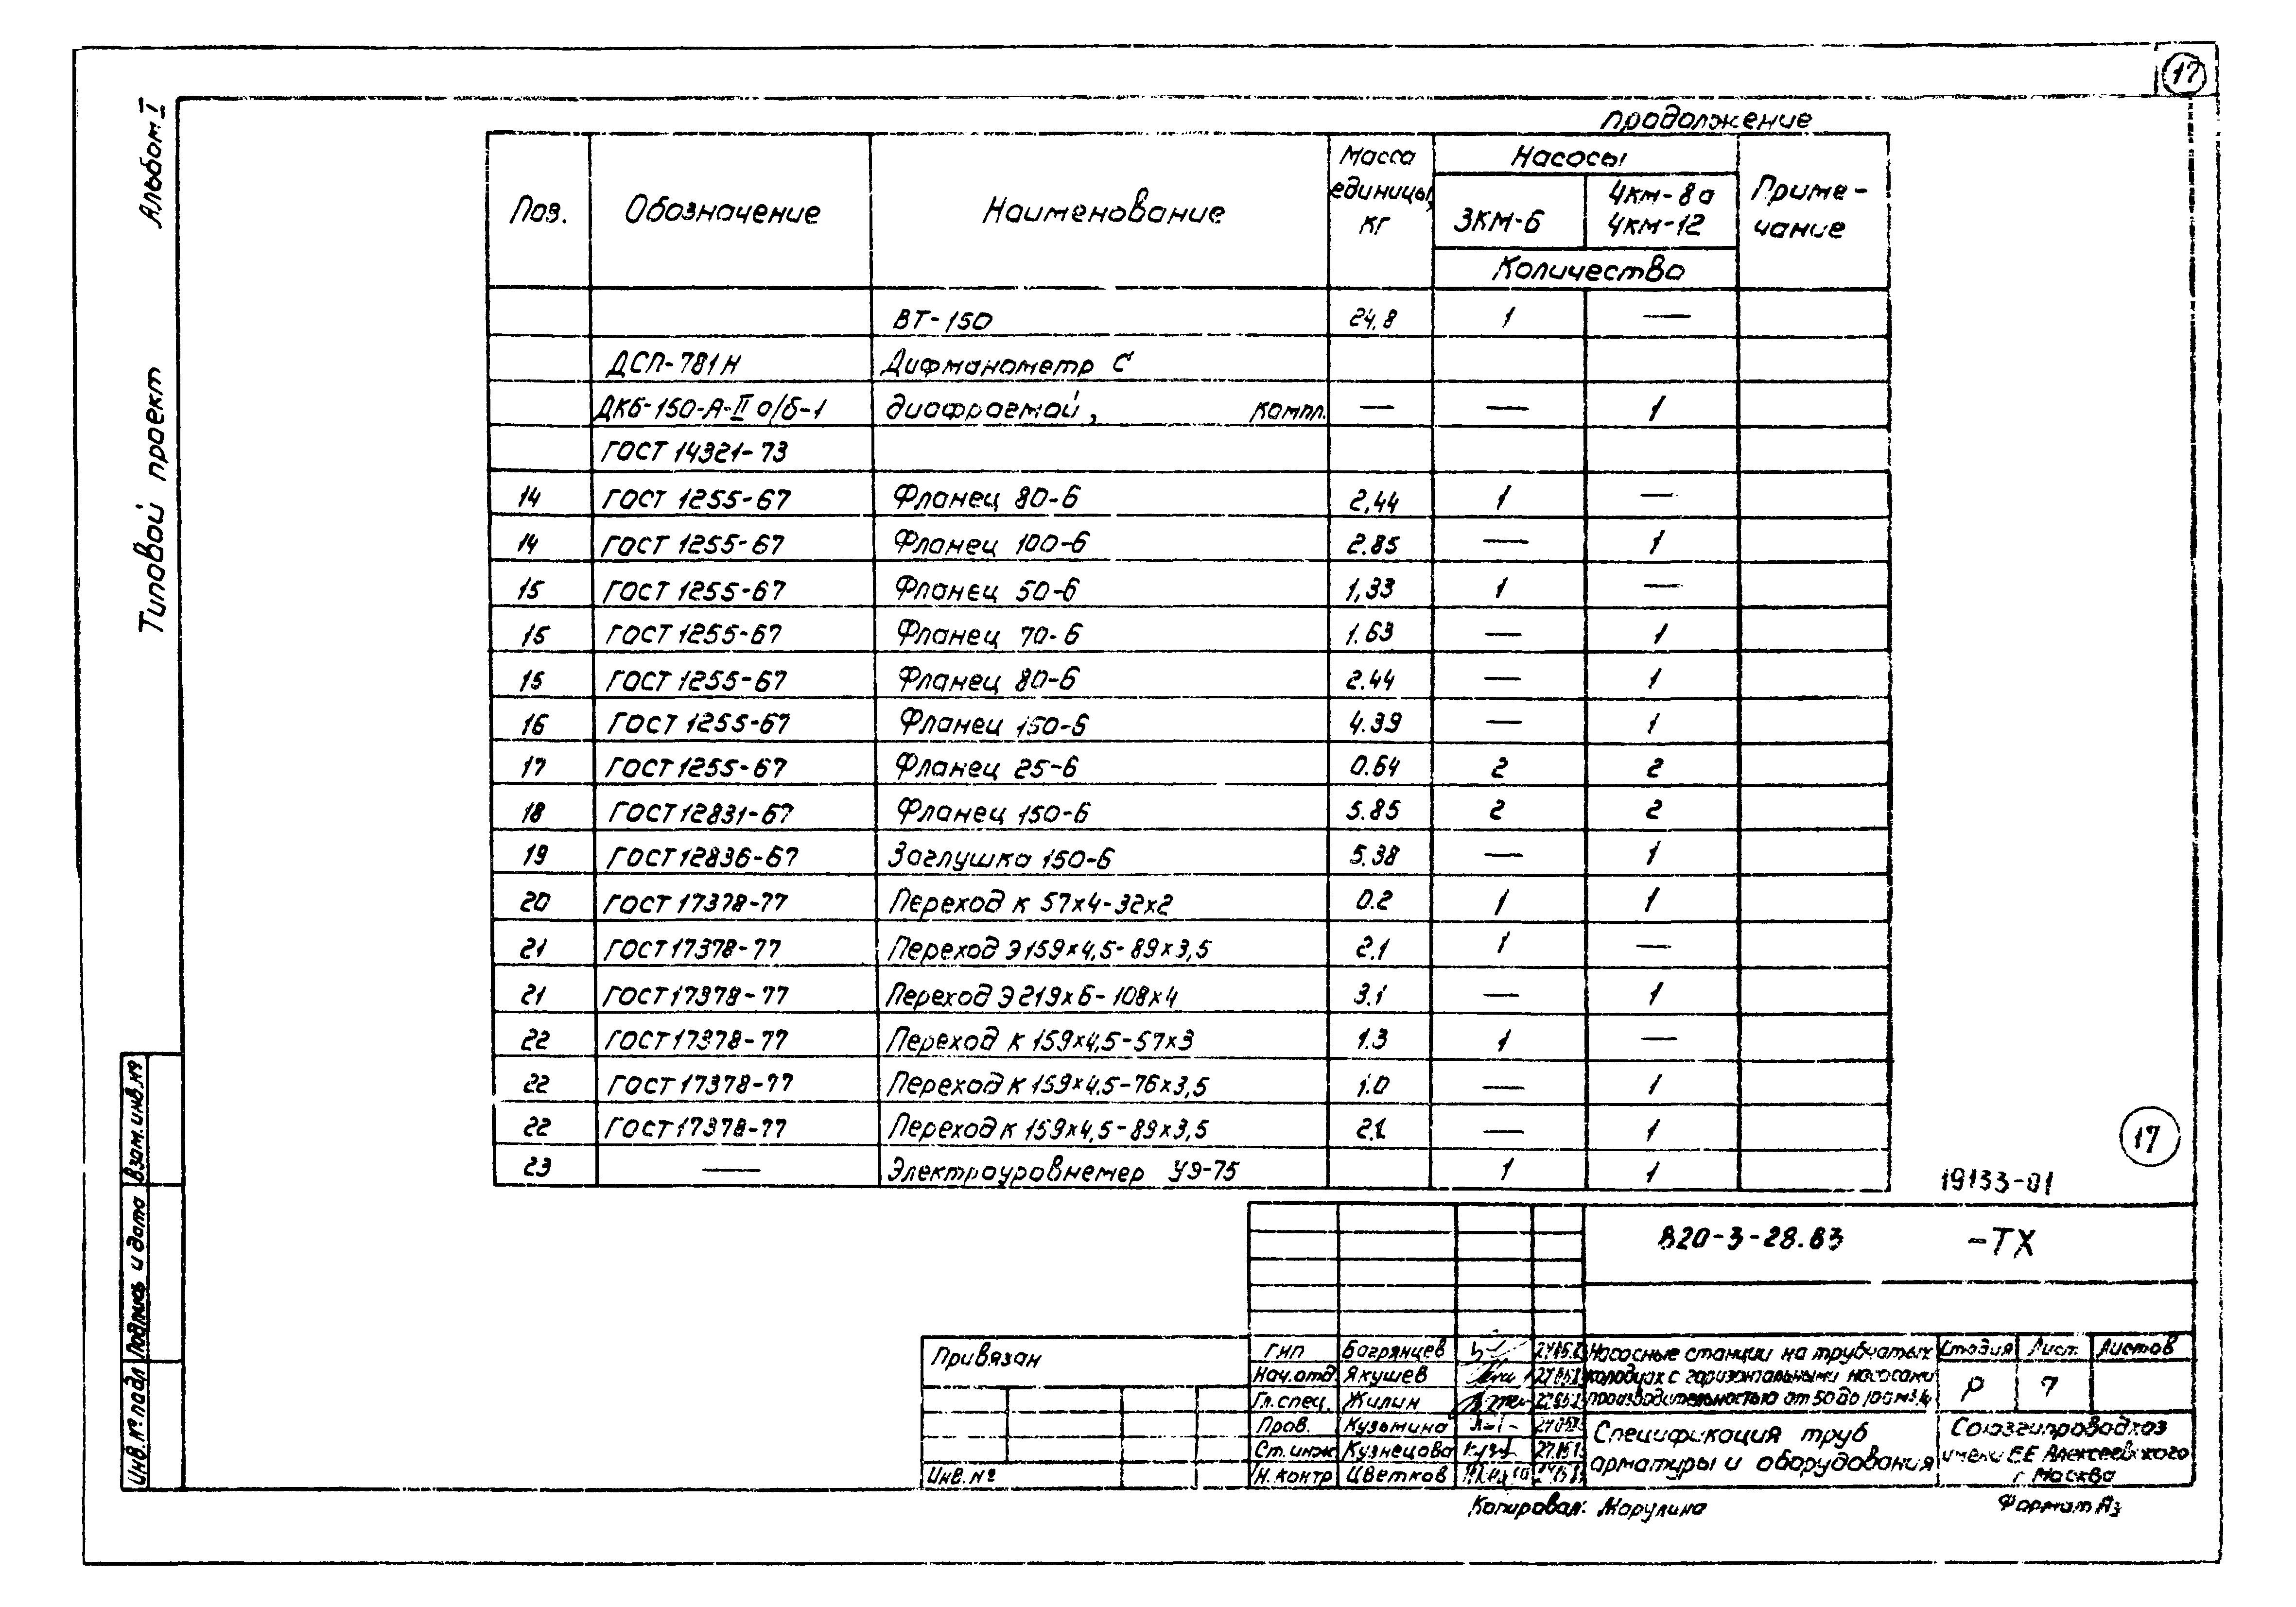 17
Альбом I
Типовой проект
продолжение
Поз. Обозначение Наименование Масса единицы, кг Насосы Приме-
чание
3КМ-6 4км-8а
4км-12
Количество
ВТ-150 24.8 1 —
ДСП-781Н Дифманометр с
ДКб-150-А-II а/б-1 диафрагмой, компл. — — 1
ГОСТ 14321-73
14 ГОСТ 1255-67 Фланец 80-6 2,44 1 —
14 ГОСТ 1255-67 Фланец 100-6 2.85 — 1
15 ГОСТ 1255-67 Фланец 50-6 1,33 1 —
15 ГОСТ 1255-67 Фланец 70-6 1.63 — 1
15 ГОСТ 1255-67 Фланец 80-6 2.44 — 1
16 ГОСТ 1255-67 Фланец 150-6 4.39 — 1
17 ГОСТ 1255-67 Фланец 25-6 0.64 2 2
18 ГОСТ 12831-67 Фланец 150-6 5.85 2 2
19 ГОСТ 12836-67 Заглушка 150-6 5.38 — 1
20 ГОСТ 17378-77 Переход к 57х4-32х2 0.2 1 1
21 ГОСТ 17378-77 Переход Э 159х4,5-89х3,5 2.1 1 —
21 ГОСТ 17378-77 Переход Э 219х6-108х4 3.1 — 1
22 ГОСТ 17378-77 Переход к 159х4,5-57х3 1.3 1 —
22 ГОСТ 17378-77 Переход к 159х4,5-76х3,5 1.0 — 1
22 ГОСТ 17378-77 Переход к 159х4,5-89х3,5 2.1 — 1
23 — Электроуровнемер УЭ-75 1 1
17
19133-01
820-3-28.83 -ТХ
Привязан
Инв. №
ГИП Багрянцев
Нач.отд. Якушев
Гл.спец. Жилин
Пров. Кузьмина
Ст.инж. Кузнецова
Н.контр Цветков
Насосные станции на трубчатых
колодцах с горизонтальными насосами
производительностью от 50 до 100 м³/ч
Спецификация труб
арматуры и оборудования
Стадия Лист. Листов
Р 7
Союзгипроводхоз
имени Е.Е Алексеевского
г. Москва
Копировал: Марулина
Формат А3
Взам.инв.№
Подпись и дата
Инв.№ подл